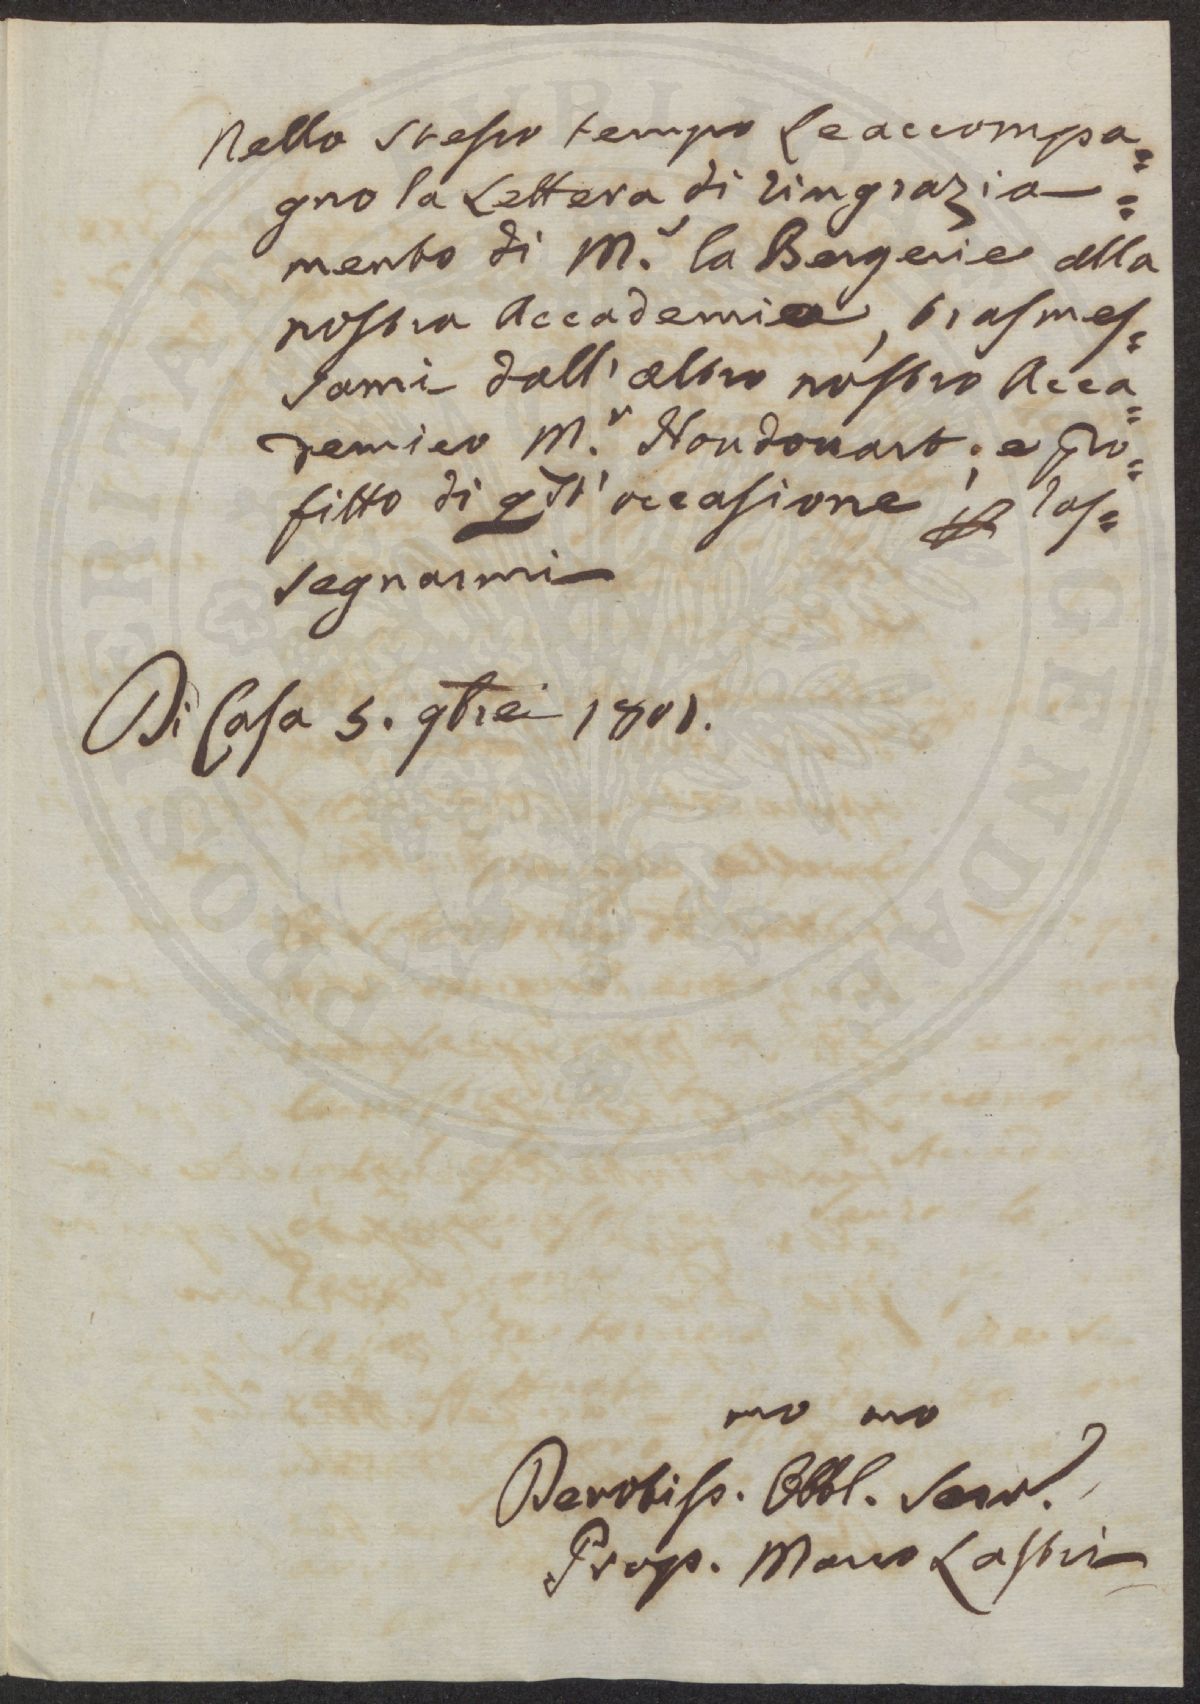 Nello stesso tempo Le accompa=
gno la Lettera di ringrazia=
mento di M.r la Bergerie alla
nostra Accademia, trasmes=
sami dall'altro nostro Acca=
demico M.r Houdouart; e pro=
fitto di qst' occasione p ras=
segnarmi
Di Casa 5. 9brei 1801.
mo mo
Devotiss. Obbl. Serv.
Prop. Marco Lastri
PROSPERITATI PUBLICAE AUGENDAE